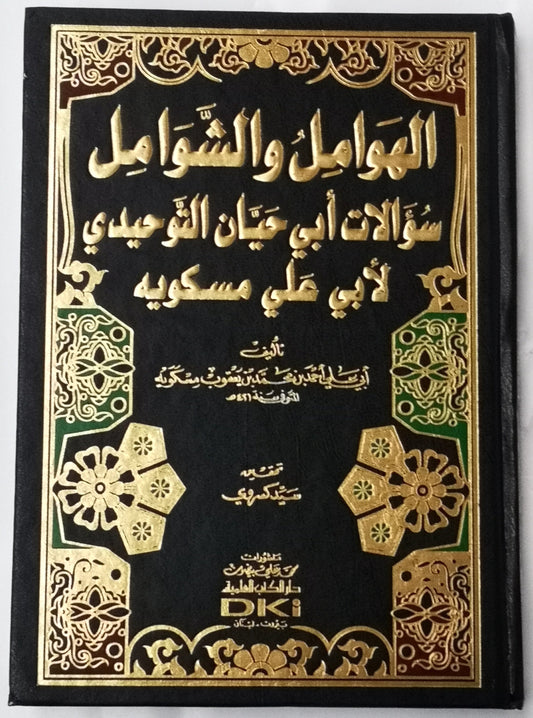 الهوامل والشَّوامل
سؤالات أبي حيَّان التَّوحيدي
لأبي عَلي مسكويه
تأليف
أبي علي أحمد بن محمد بن يعقوب مسكويه
المتوفى سنة ٤٢١ هـ
تحقيق
سيد كسروي
منشورات
محمد علي بيضون
دار الكتب العلمية
DKi
بيروت - لبنان